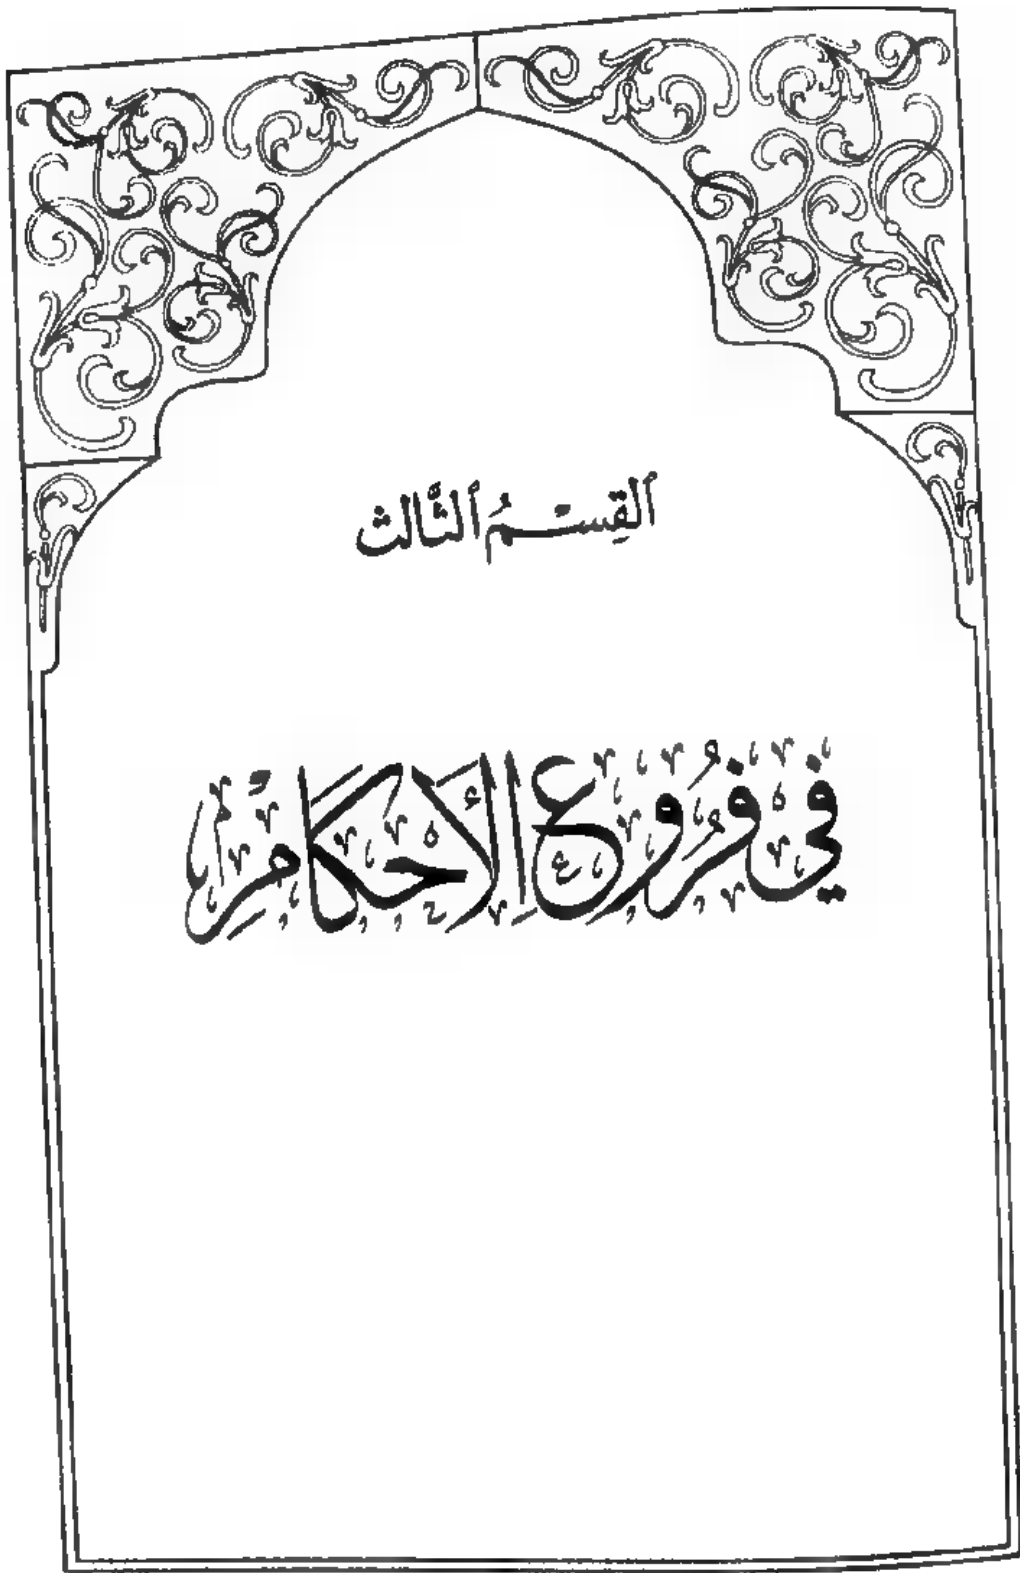 ٱلقِسْمُ ٱلثَّالث
فِي فُرُوعِ الأَحْكَامِ